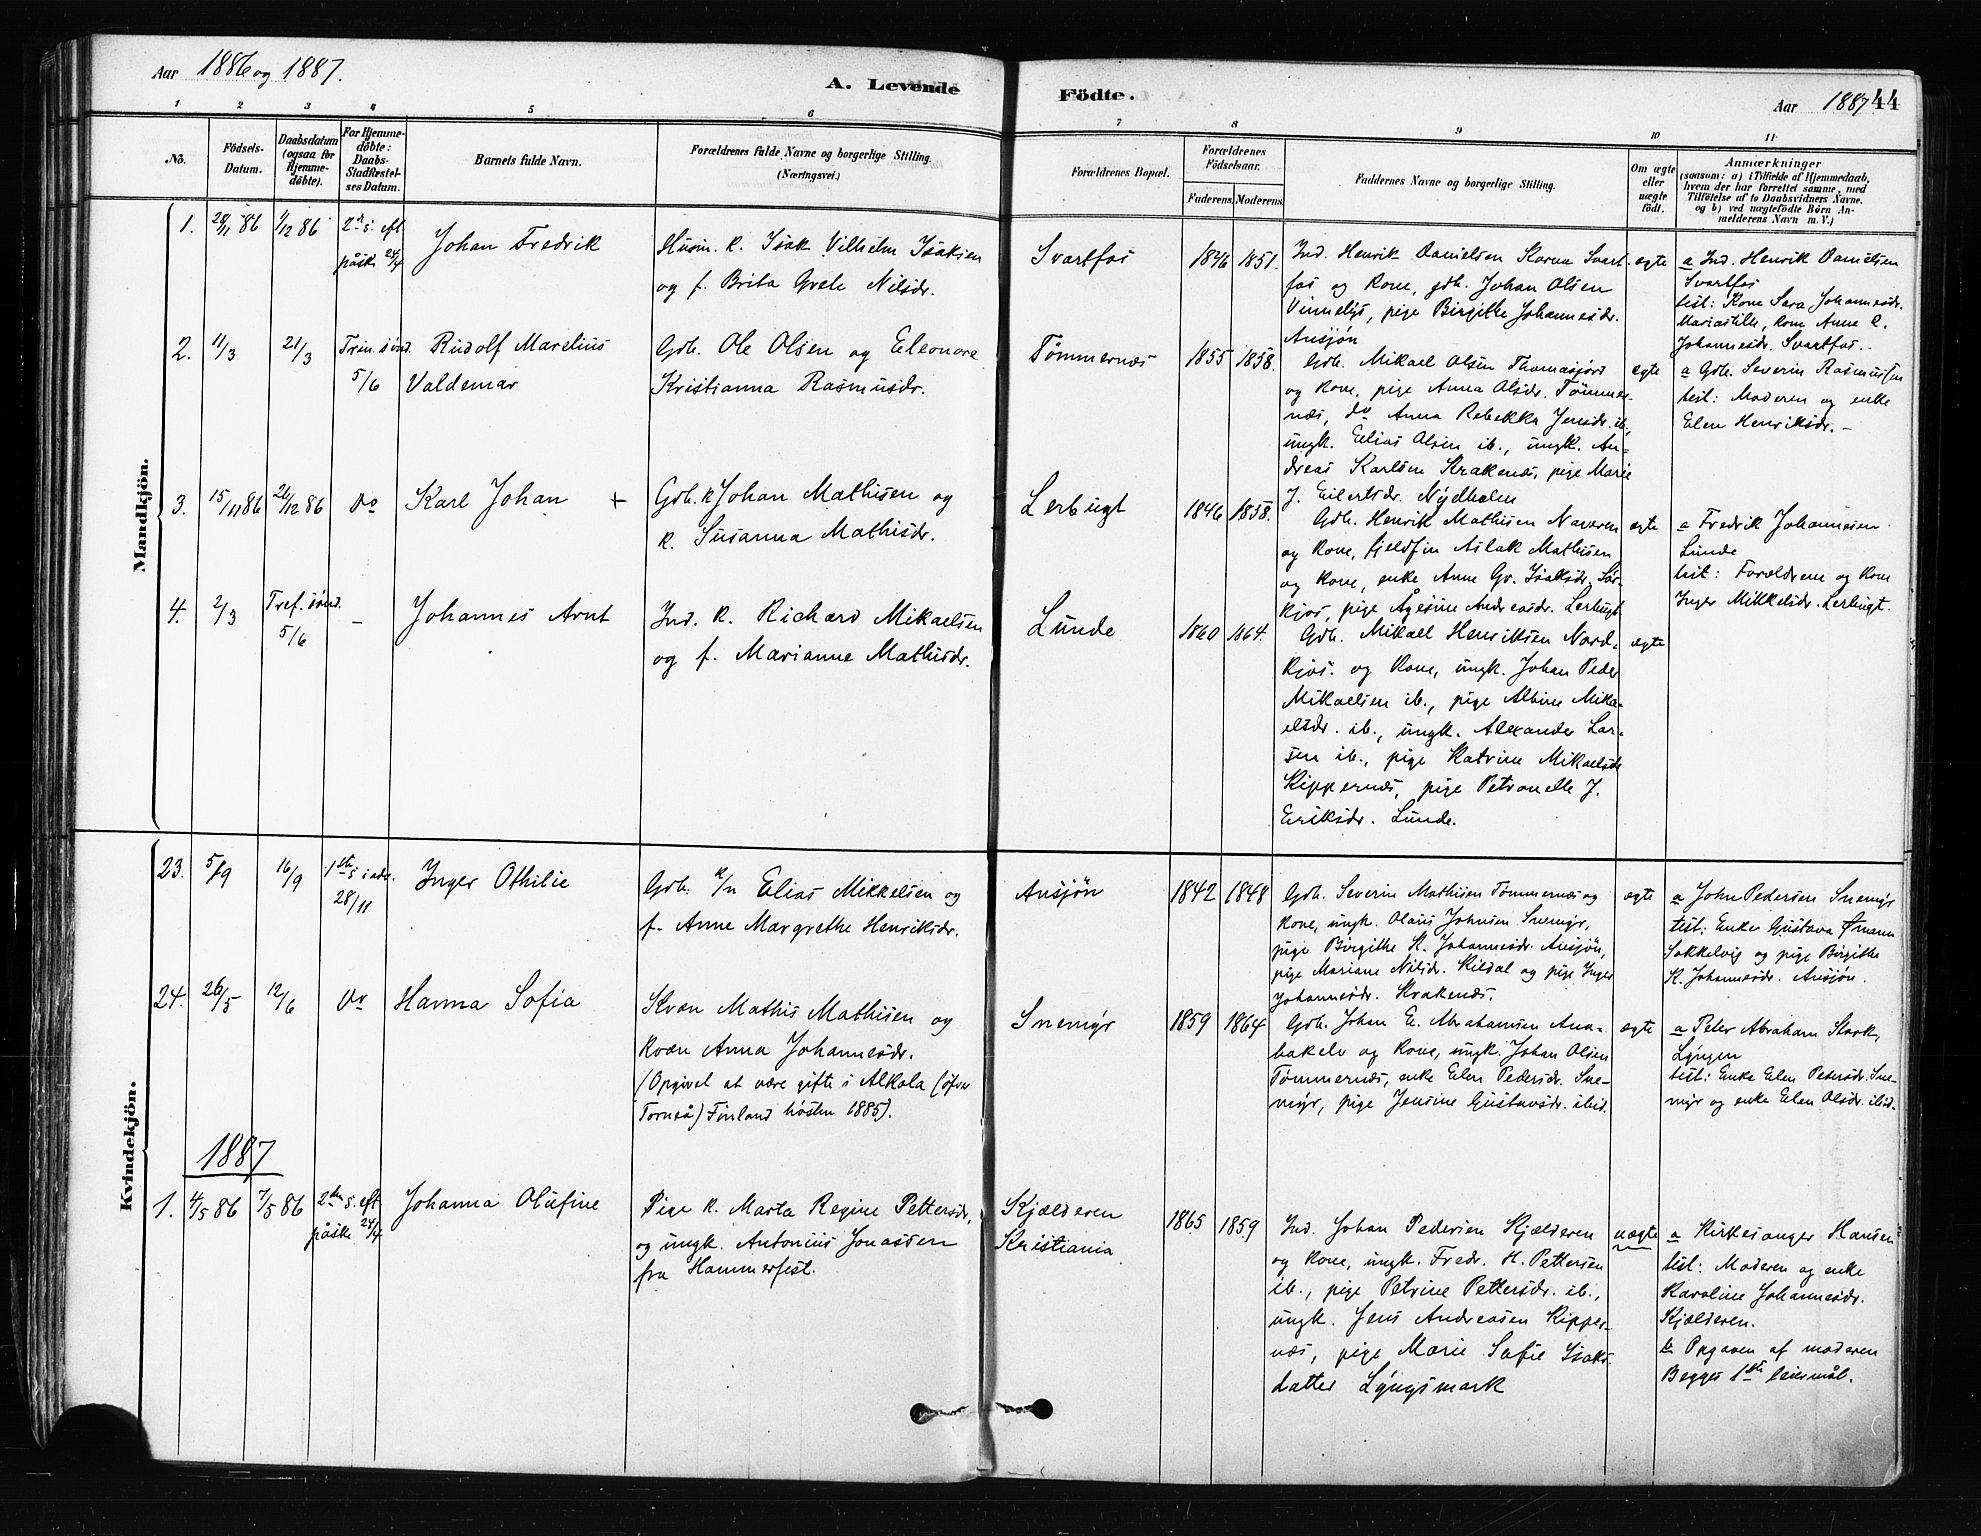 Aar 1886 og 1887.
A. Levende
Födte.
Aar 1887 44
1 2 3 4 5 6 7 8 9 10 11
No.
Födsels-
Datum.
Daabsdatum
(ogsaa for
Hjemme-
döbte).
For Hjemme-
döbte:
Daabs-
Stadfæstel-
ses Datum.
Barnets fulde Navn.
Forældrenes fulde Navne og borgerlige Stilling.
(Næringsvei.)
Forældrenes Bopæl.
Forældrenes
Födselsaar.
Faderens. Moderens.
Faddernes Navne og borgerlige Stilling.
Om ægte
eller
uægte
födt.
Anmærkninger
(saasom: a) i Tilfælde af Hjemmedaab,
hvem der har forrettet samme, med
Tilföielse af to Daabsvidners Navne.
og b) ved uægtefödte Börn An-
melderens Navn m. V.)
Mandkjön.
1. 28/11 86 1/12 86 2den s. eft.
påske 24/4
Johan Fredrik
Husm. k. Isak Vilhelm Isaksen
og f. Brita Grete Nilsdr.
Svartfos
1846 1851.
Ind. Henrik Danielsen Svart-
fos og kone, gdb. Johan Olsen
Vinnelys, pige Birgitte Johannesdr.
Ansjøn
ægte
a Ind. Henrik Danielsen
Svartfos
test: Kone Sara Johannesdr.
kone Anne
Johannesdr. Svartfos.
2. 11/3 21/3 Trin. sønd.
5/6
Rudolf Marelius
Valdemar
Gdb. Ole Olsen og Eleonore
Kristianna Rasmusdr.
Tømmernæs
1855 1858.
Gdb. Mikael Olsen Thomasjord
og kone, pige Anna Olsdr. Tømmer-
næs, do Anna Rebekka Jensdr. ib.,
ungk. Elias Olsen ib., ungk. An-
dreas Karlsen Krakenæs, pige Marie
J. Eilertsdr. Nyeholm
ægte
a Gdb. Severin Rasmussen
test: Moderen og enke
Elen Henriksdr. -
3. 15/11 86 26/12 86 do
Karl Johan +
Gdb. k Johan Mathisen og
k. Susanna Mathisdr.
Lerbugt
1846 1858.
Gdb. Henrik Mathisen Navaren
og kone, fjeldfin Aslak Mathisen
og kone, enke Anne Gr. Isaksdr. Sør-
kjos, pige Ågesine Andreasdr. Lerbugt
ægte
a Fredrik Johannesen
Lunde
test: Forældrene og kone
Inger Mikkelsdr. Lerbugt.
4. 2/3 Tref. sønd.
5/6 -
Johannes Arnt
Ind. k. Richard Mikaelsen
og f. Marianne Mathisdr.
Lunde
1860 1864.
Gdb. Mikael Henriksen Nord-
kjos og kone, ungk. Johan Peder
Mikaelsen ib., pige Albine Mika-
elsdr. ib., ungk. Alexander Lar-
sen ib., pige Katrine Mikaelsdr
Kippernæs, pige Petronelle J.
Eriksdr. Lunde.
ægte
Kvindekjön.
23. 5/9 16/9 1ste s. i adv.
28/11
Inger Othilie
Gdb. k/n Elias Mikkelsen og
f. Anne Margrethe Henriksdr.
Ansjön
1842 1848
Gdb. Severin Mathisen Tømmernæs og
kone, ungk. Olaus Johnsen Snemyr,
pige Birgithe K. Johannesdr. Ansjön,
pige Mariane Nilsdr. Kildal og pige Inger
Johannesdr. Krakenæs.
ægte
a John Pedersen Snemyr
test: Enke Gustava
Sokkelvig og pige Birgithe
K. Johannesdr. Ansjön.
24. 26/5 12/6 do
Hanna Sofia
Kvæn Mathis Mathisen og
kvæn Anna Johannesdr.
(Opgivet at være gifte i Alkola (öfver
Torneå) Finland hösten 1885).
Snemyr
1859 1864
Gdb. Johan E. Abrahamsen Ana-
bakelv og kone, ungk. Johan Olsen
Tømmernæs, enke Elen Pedersdr. Sne-
myr, pige Jensine Gustavsdr. ibid.
ægte
a Peter Abraham Stark,
Lyngen
test: Enke Elen Petersdr. Sne-
myr og enke Elen Olsdr. ibid.
1887
1. 4/5 86 7/5 86 2den s. eft.
påske 24/4
Johanna Olufine
Pige k. Marta Regine Pettersdr,
og ungk. Antonius Jonassen
fra Hammerfest.
Kjælderen
Kristiania
1865 1859
Ind. Johan Pedersen Kjælderen
og kone, ungk. Fredr. H. Pettersen
ib., pige Petrine Pettersdr. ib.,
ungk. Jens Andreasen Kipper-
næs, pige Marie Sofie Isaks-
datter Lyngsmark
uægte
a Kirkesanger Hansen
test: Moderen og enke
Karoline Johannesdr.
Kjælderen.
b Opgaven af moderen
Begges 1ste leiermål.